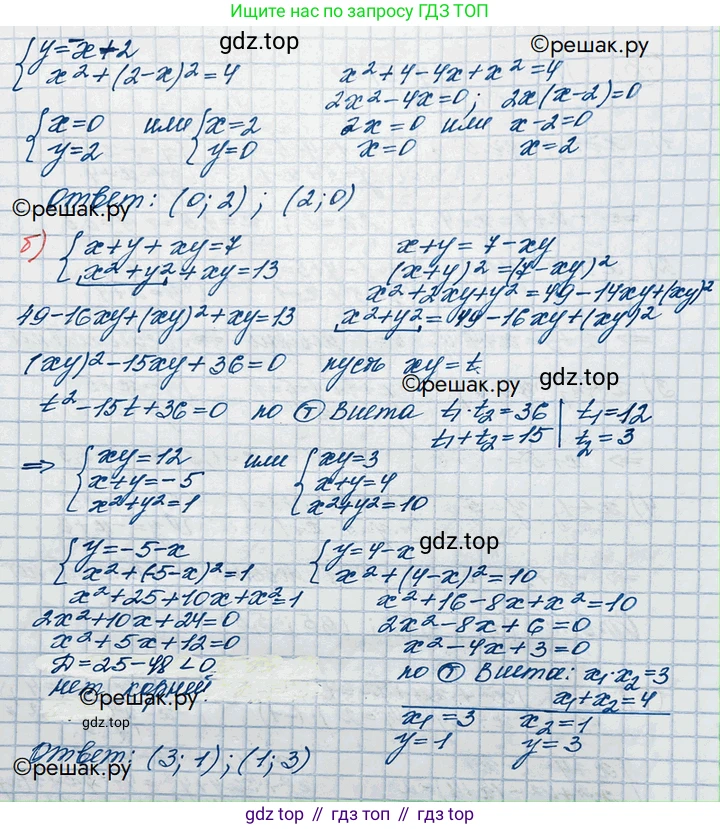 Ищите нас по запросу ГДЗ ТОП
{ y=-x+2
x²+(2-x)²=4
gdz.top
©решак.ру
x²+4-4x+x²=4
2x²-4x=0; 2x(x-2)=0
{ x=0 или { x=2
y=2 y=0
2x=0 или x-2=0
x=0 x=2
Ответ: (0;2); (2;0)
©решак.ру
б) { x+y+xy=7
x²+y²+xy=13
x+y=7-xy
(x+y)²=(7-xy)²
x²+2xy+y²=49-14xy+(xy)²
49-16xy+(xy)²+xy=13
x²+y²=49-16xy+(xy)²
(xy)²-15xy+36=0 пусть xy=t.
©решак.ру
gdz.top
t²-15t+36=0 по Ⓣ Виета t₁·t₂=36 | t₁=12
t₁+t₂=15 | t₂=3
=> { xy=12 или { xy=3
x+y=-5 x+y=4
x²+y²=1 x²+y²=10
gdz.top
{ y=-5-x
x²+(-5-x)²=1
x²+25+10x+x²=1
2x²+10x+24=0
x²+5x+12=0
Д=25-48<0
нет корней.
{ y=4-x
x²+(4-x)²=10
x²+16-8x+x²=10
2x²-8x+6=0
x²-4x+3=0
по Ⓣ Виета: x₁·x₂=3
x₁+x₂=4
x₁=3 x₂=1
y=1 y=3
gdz.top
Ответ: (3;1); (1;3)
©решак.ру
©решак.ру
gdz.top // гдз топ // gdz.top